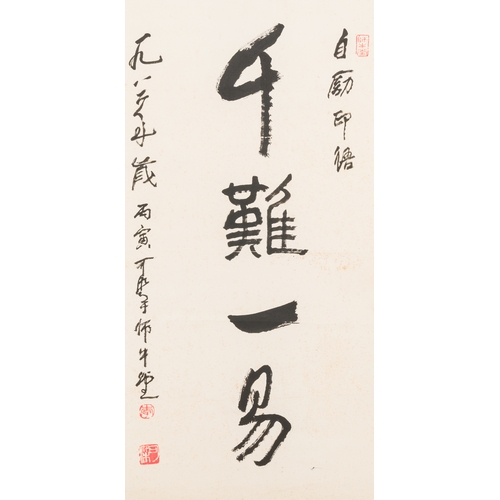 自勵印語
千難一易
一九八六年歲丙寅可染于師牛堂